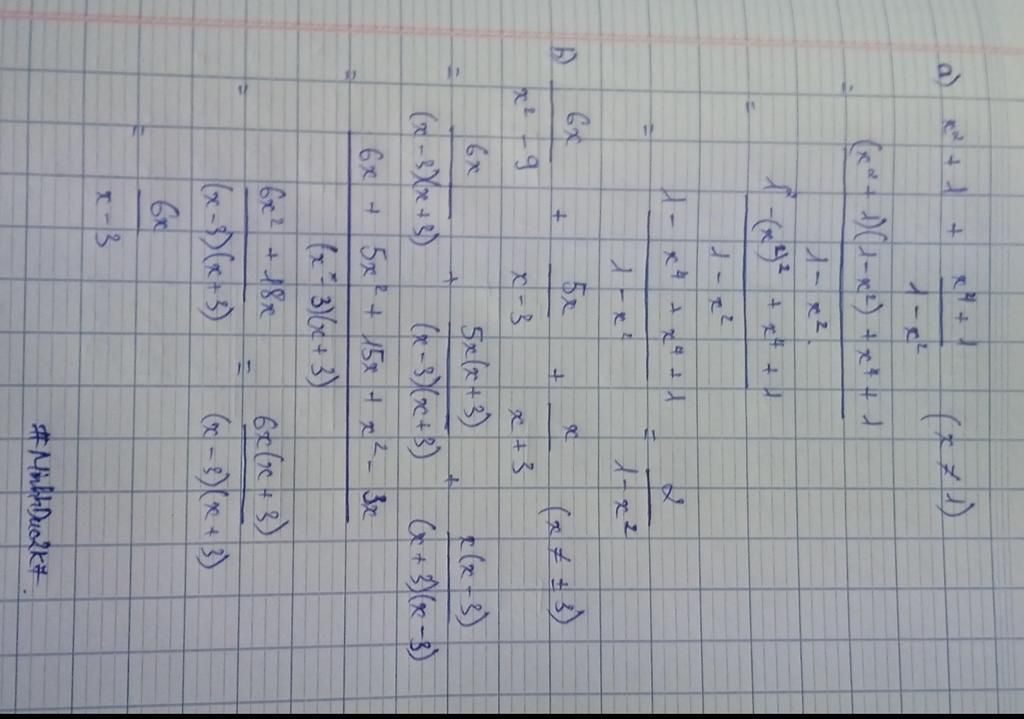 a) x² + 1 + \frac{x⁴ + 1}{1 - x²} (x ≠ 1)
= \frac{(x² + 1)(1 - x²) + x⁴ + 1}{1 - x².}
= \frac{1² - (x²)² + x⁴ + 1}{1 - x²}
= \frac{1 - x⁴ + x⁴ + 1}{1 - x²} = \frac{2}{1 - x²}
b) \frac{6x}{x² - 9} + \frac{5x}{x - 3} + \frac{x}{x + 3} (x ≠ ± 3)
= \frac{6x}{(x - 3)(x + 3)} + \frac{5x(x + 3)}{(x - 3)(x + 3)} + \frac{x(x - 3)}{(x + 3)(x - 3)}
= \frac{6x + 5x² + 15x + x² - 3x}{(x - 3)(x + 3)}
= \frac{6x² + 18x}{(x - 3)(x + 3)} = \frac{6x(x + 3)}{(x - 3)(x + 3)}
= \frac{6x}{x - 3}
#MinhDuc2k7.